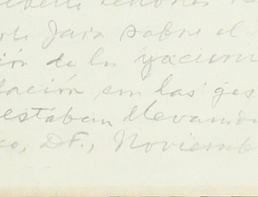 Jara sobre el
ción de los yacim
lación en las ges
estaban llevando
co, D.F., Noviemb